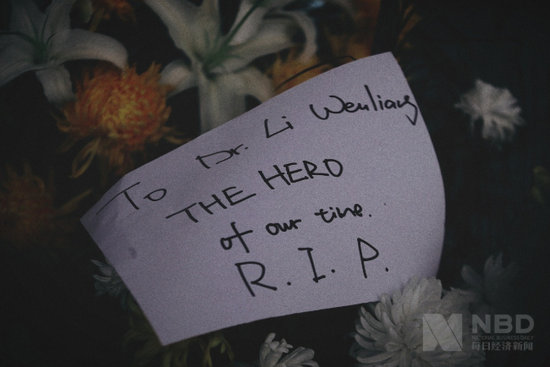 To Dr. Li Wenliang
THE HERO
of our time.
R.I.P.
NBD
NATIONAL BUSINESS DAILY
每日经济新闻